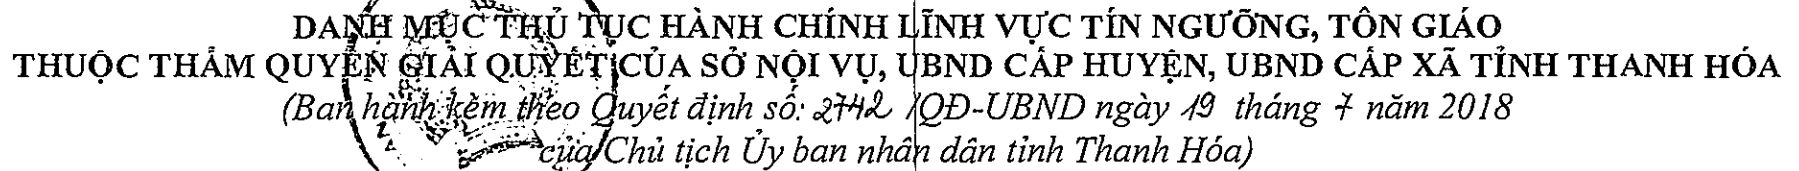 DANH MỤC THỦ TỤC HÀNH CHÍNH LĨNH VỰC TÍN NGƯỠNG, TÔN GIÁO
THUỘC THẨM QUYỀN GIẢI QUYẾT CỦA SỞ NỘI VỤ, UBND CẤP HUYỆN, UBND CẤP XÃ TỈNH THANH HÓA
(Ban hành kèm theo Quyết định số: 2742 /QĐ-UBND ngày 19 tháng 7 năm 2018
của Chủ tịch Ủy ban nhân dân tỉnh Thanh Hóa)